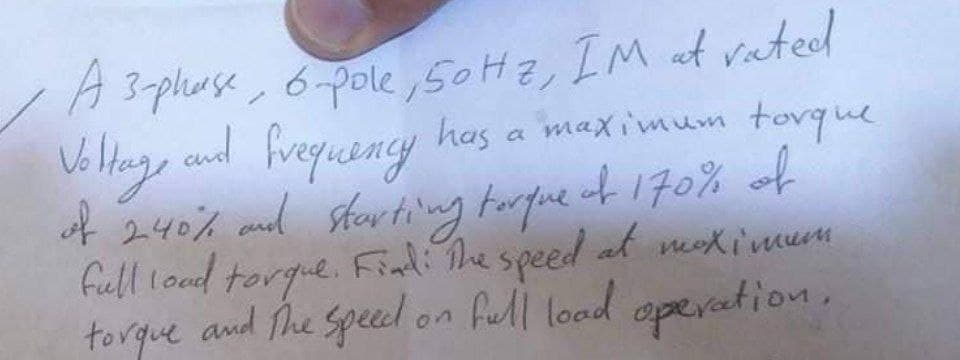 A 3-phase, 6-pole, 50Hz, IM at rated
Voltage and frequency has a maximum torque
of 240% and starting torque of 170% of
full load torque. Find: The speed at maximum
torque and The speed on full load operation.